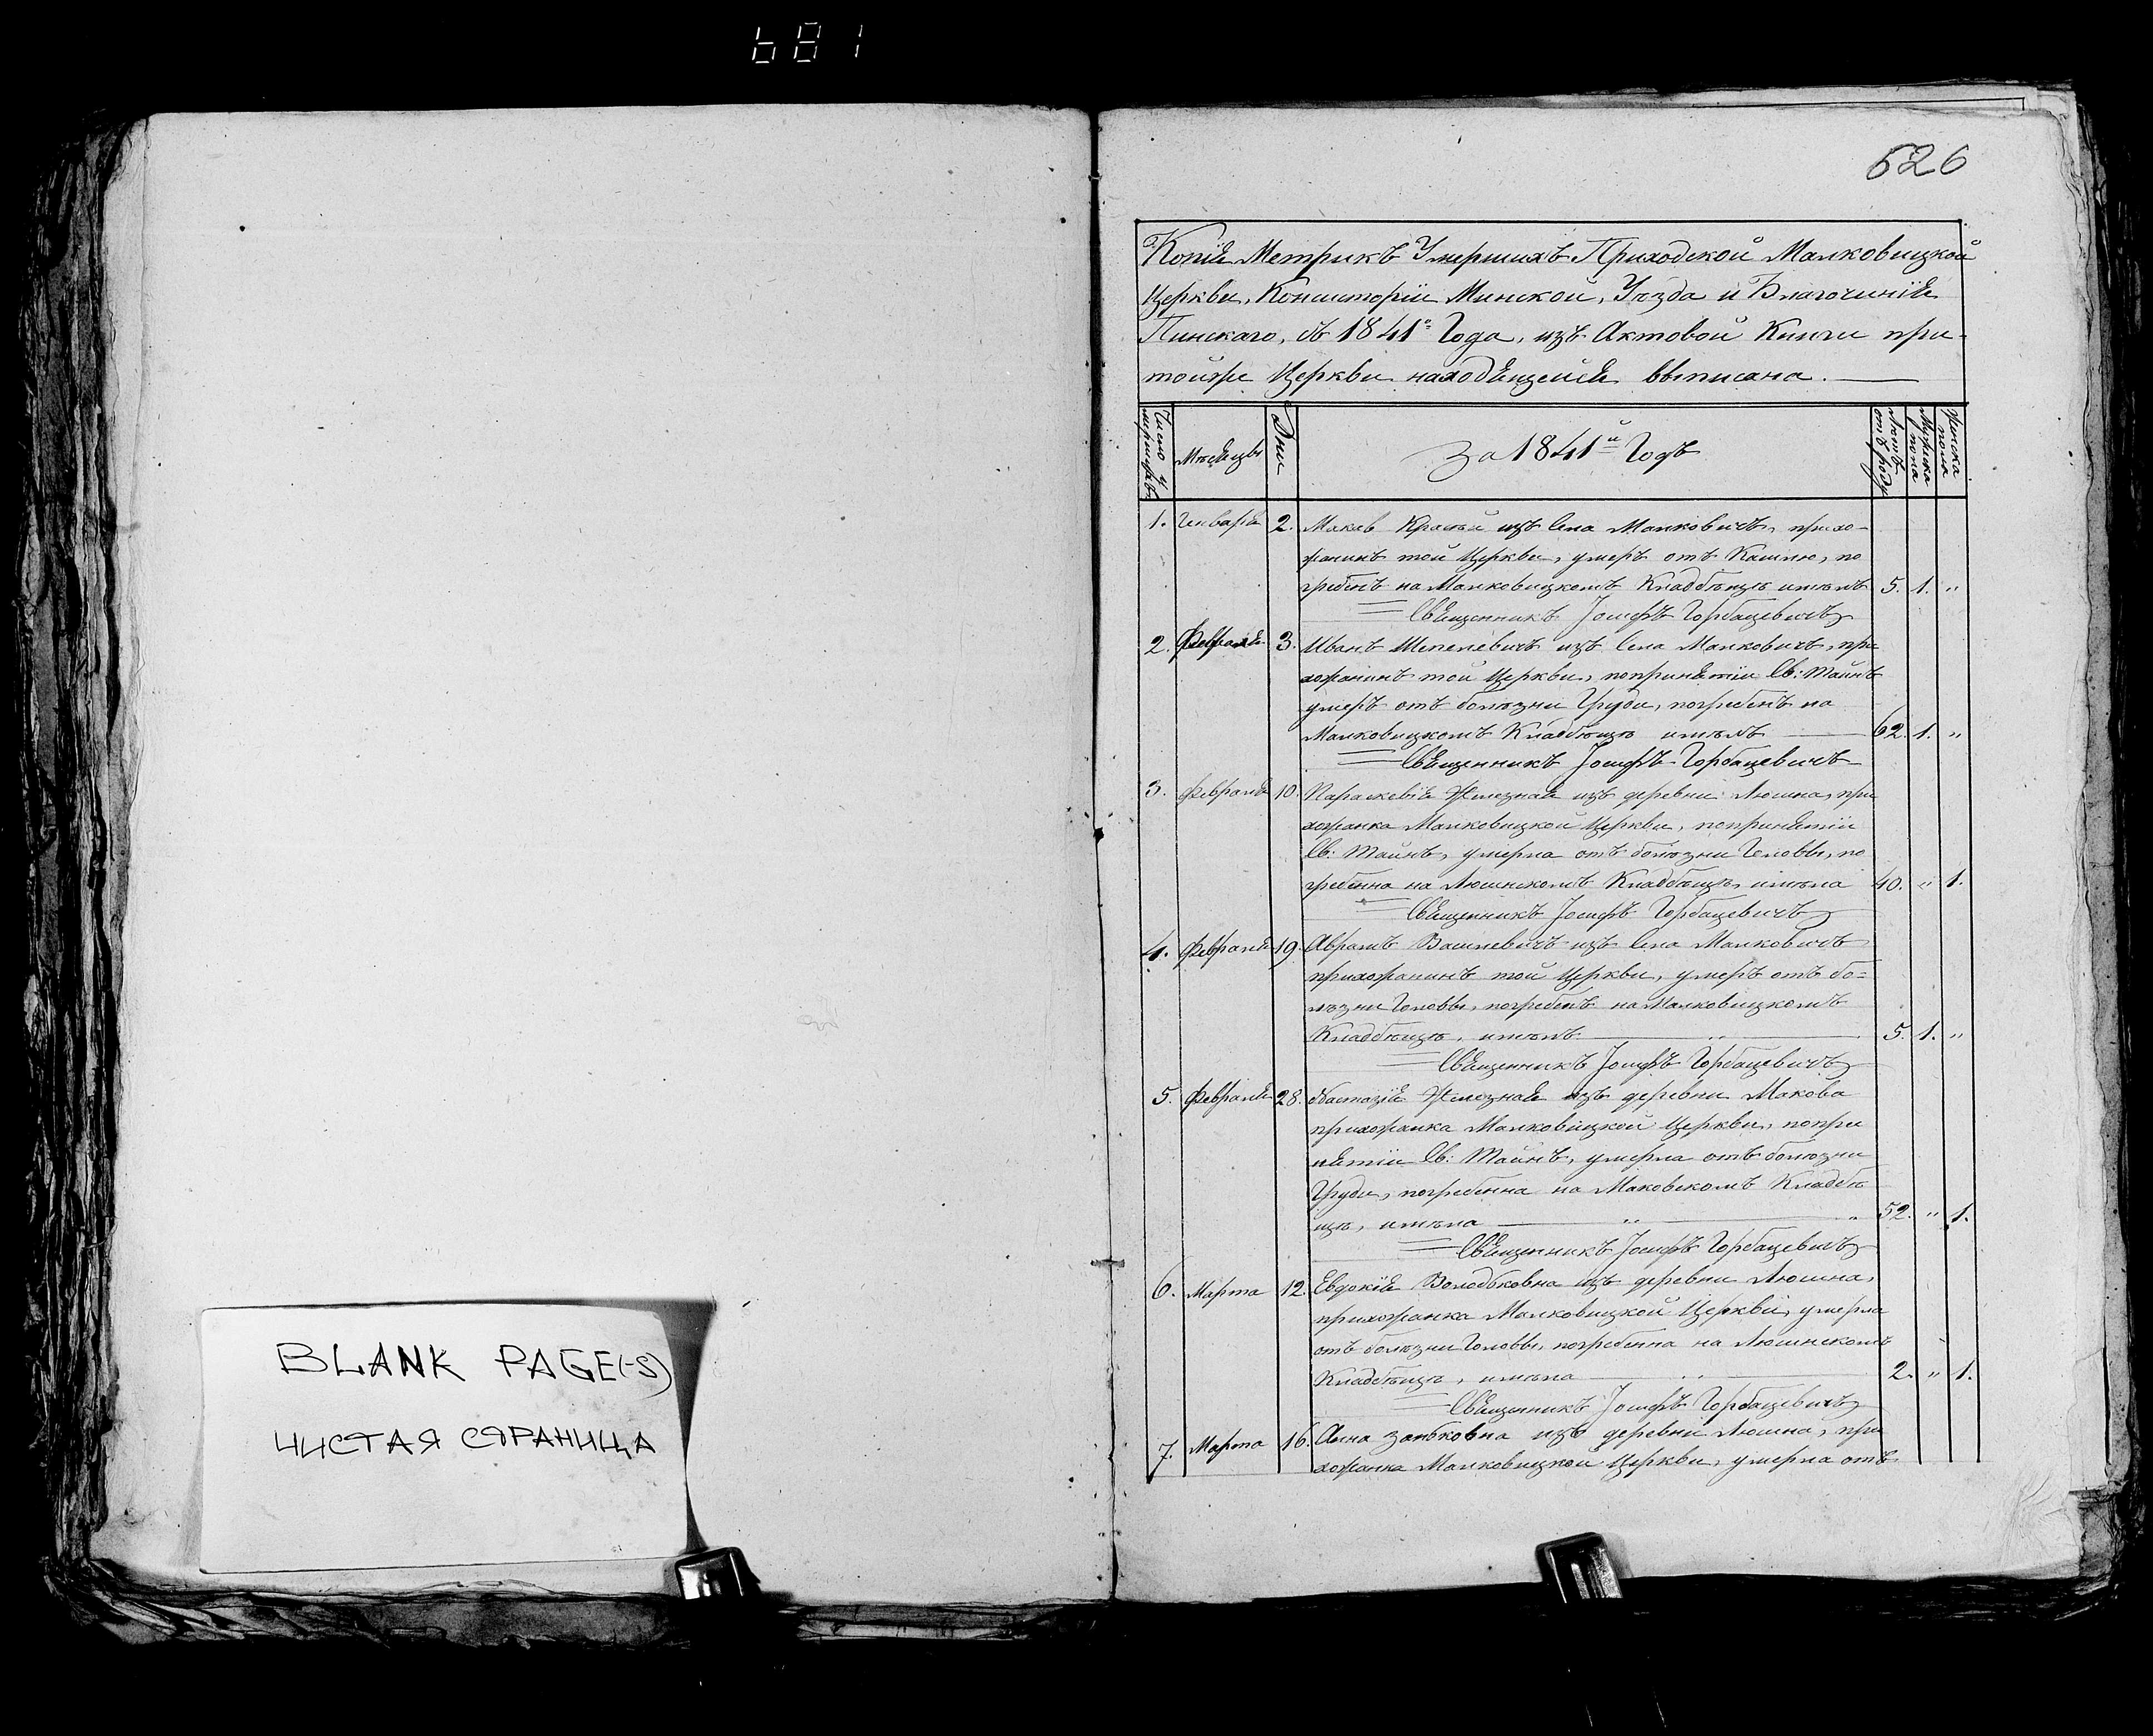 681
626
Копія Метрикъ Умершихъ Приходской Малковицкой
Церкви, Консисторіи Минской, Уѣзда и Благочинія
Пинскаго, съ 1841го Года, изъ Актовой Книги при
тойже Церкви находящейся выписана.
Число умершихъ
Мѣсяцы
Дни
За 1841й Годъ
Лѣтъ отъ роду
Мужска пола
Женска пола
1. Генваря 2. из Села Малковичъ, прихо-
жанинъ той Церкви, умеръ отъ Кашлю, по
гребенъ на Малковицкомъ Кладбѣщѣ имѣлъ 5. 1. "
Священникъ Іосифъ Горбацевичъ
2. Февраля 3. Иванъ Шепелевичъ изъ Села Малковичъ, при
хожанинъ той Церкви, попринятіи Св: Тайнъ
умеръ отъ болѣзни Груди, погребенъ на
Малковицкомъ Кладбѣщѣ имѣлъ 62. 1. "
Священникъ Іосифъ Горбацевичъ
3. Февраля 10. Параскевія Желѣзная изъ деревни Люсина, при
хожанка Малковицкой Церкви, попринятіи
Св: Тайнъ, умерла отъ болѣзни Головы, по
гребенна на Люсинскомъ Кладбѣщѣ, имѣла 40. " 1.
Священникъ Іосифъ Горбацевичъ
4. Февраля 19. Аврамъ Васілевичъ изъ Села Малковичъ
прихожанинъ той Церкви, умеръ отъ бо-
лѣзни Головы, погребенъ на Малковицкомъ
Кладбѣщѣ, имѣлъ 5. 1. "
Священникъ Іосифъ Горбацевичъ
5. Февраля 28. Настазія Желѣзная изъ деревни Макова
прихожанка Малковицкой Церкви, попри
нятіи Св: Тайнъ, умерла отъ болѣзни
Груди, погребенна на Маковскомъ Кладбѣ
щѣ, имѣла 52. " 1.
Священникъ Іосифъ Горбацевичъ
6. Марта 12. Евдокія Володьковна изъ деревни Люсина,
прихожанка Малковицкой Церкви, умерла
отъ болѣзни Головы, погребенна на Люсинскомъ
Кладбѣщѣ, имѣла 2. " 1.
Священникъ Іосифъ Горбацевичъ
7. Марта 16. Анна Заньковна изъ деревни Люсина, при
хожанка Малковицкой Церкви, умерла отъ
BLANK PAGE(-S)
ЧИСТАЯ СТРАНИЦА